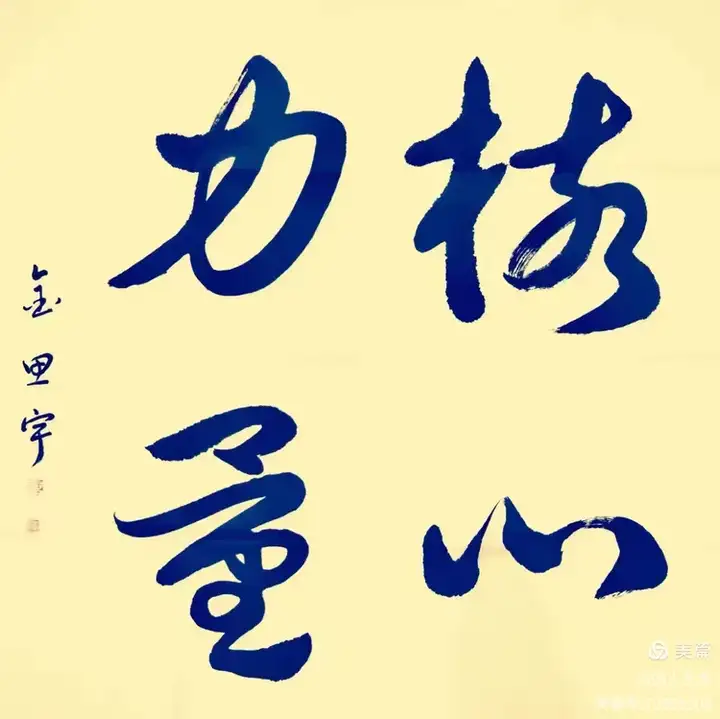 核心
力量
金思宇
美篇